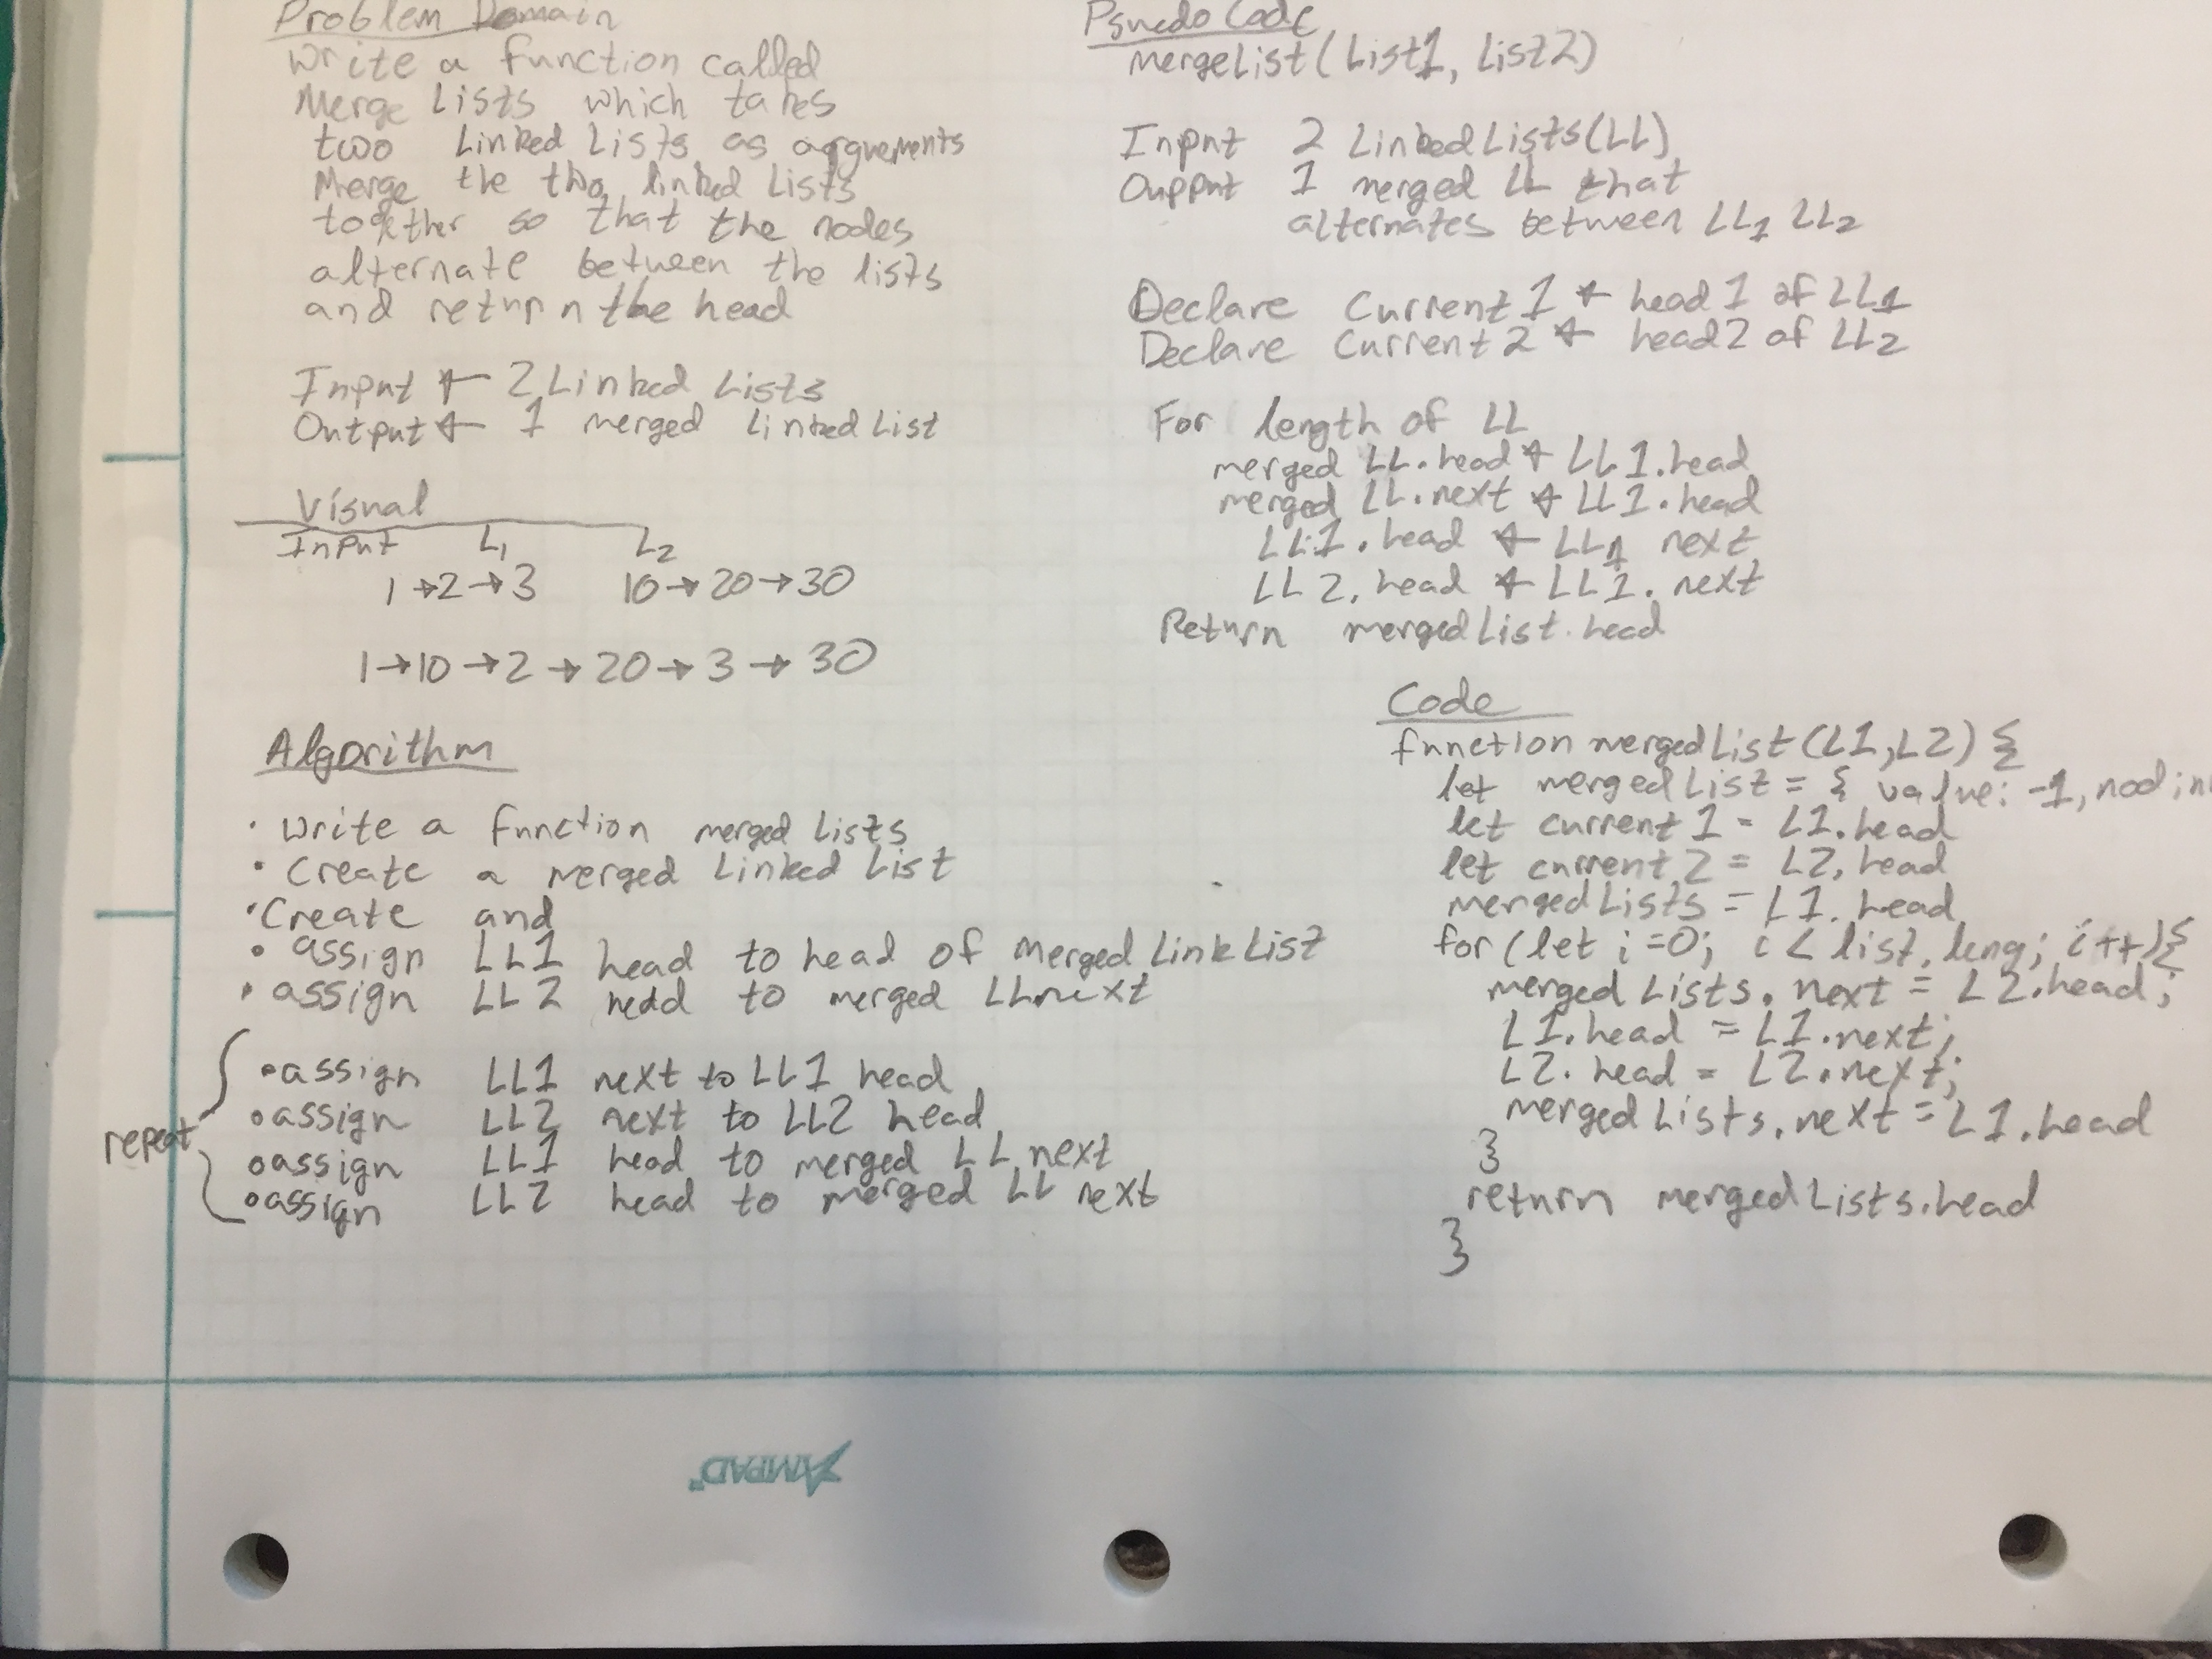 Problem Domain
Write a function called
Merge Lists which takes
two Linked Lists as arguements
Merge the two linked lists
together so that the nodes
alternate between the lists
and return the head
Input ← 2 Linked Lists
Output ← 1 merged linked list
Visual
Input L1 L2
1→2→3 10→20→30
1→10→2→20→3→30
Algorithm
· Write a function merged lists
· Create a merged Linked List
· Create and
· assign LL1 head to head of merged link List
· assign LL2 head to merged LL next
repeat
· assign LL1 next to LL1 head
· assign LL2 next to LL2 head
· assign LL1 head to merged LL next
· assign LL2 head to merged LL next
Psudo Code
MergeList(List1, List2)
Input 2 Linked Lists(LL)
Ouppnt 1 merged LL that
alternates between LL1 LL2
Declare Current1 ← head1 of LL1
Declare Current2 ← head2 of LL2
For length of LL
merged LL.head ← LL1.head
merged LL.next ← LL1.head
LL1.head ← LL1 next
LL2.head ← LL1.next
Return mergedList.head
Code
function mergedList(L1,L2){
let mergedList = { value: -1,
let current1 = L1.head
let current2 = L2.head
mergedLists = L1.head
for(let i=0; i< list.leng; i++){
mergedLists.next = L2.head;
L1.head = L1.next;
L2.head = L2.next;
mergedLists.next = L1.head
}
return mergedLists.head
}
AMPAD™